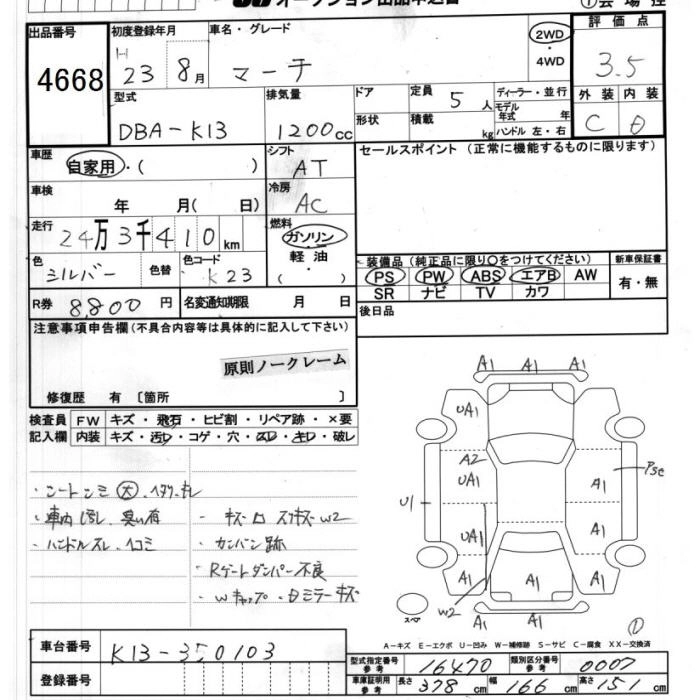 出品番号
4668
初度登録年月
H
23 8月
車名・グレード
マーチ
2WD
・
4WD
評価点
3.5
外装 内装
C D
型式
DBA-K13
排気量
1200cc
ドア
形状
定員 5人
積載 kg
ディーラー・並行
モデル年式 年
ハンドル 左・右
車歴
自家用・( )
シフト
AT
車検
年 月( 日)
冷房
AC
セールスポイント(正常に機能するものに限ります)
走行
24万3千410km
燃料
ガソリン
軽油
・
( )
色
シルバー
色替
色コード
K23
装備品(純正品に限り○をつけてください)
PS PW ABS エアB AW
SR ナビ TV カワ
新車保証書
有・無
R券 8,800円
名変通知期限 月 日
後日品
注意事項申告欄(不具合内容等は具体的に記入して下さい)
原則ノークレーム
修復歴 有 [箇所 ]
検査員
記入欄
FW キズ・飛石・ヒビ割・リペア跡・×要
内装 キズ・汚レ・コゲ・穴・スレ・キレ・破レ
・シートシミ 大
・車内汚レ、臭い有
・ハンドルスレ、ヘコミ
・カンバン跡
・Rゲートダンパー不良
A1 A1 A1
UA1 A1
A2
UA1 A1
U1
UA1 A1
A1 A1 A1
W2
A1 A1 A1
スペア
A-キズ E-エクボ U-凹み W-補修跡 S-サビ C-腐食 XX-交換済
車台番号
K13-350103
登録番号
型式指定番号
参考
16470
類別区分番号
参考
0007
車庫証明用
参考
長さ 378cm 幅 166cm 高さ 151cm